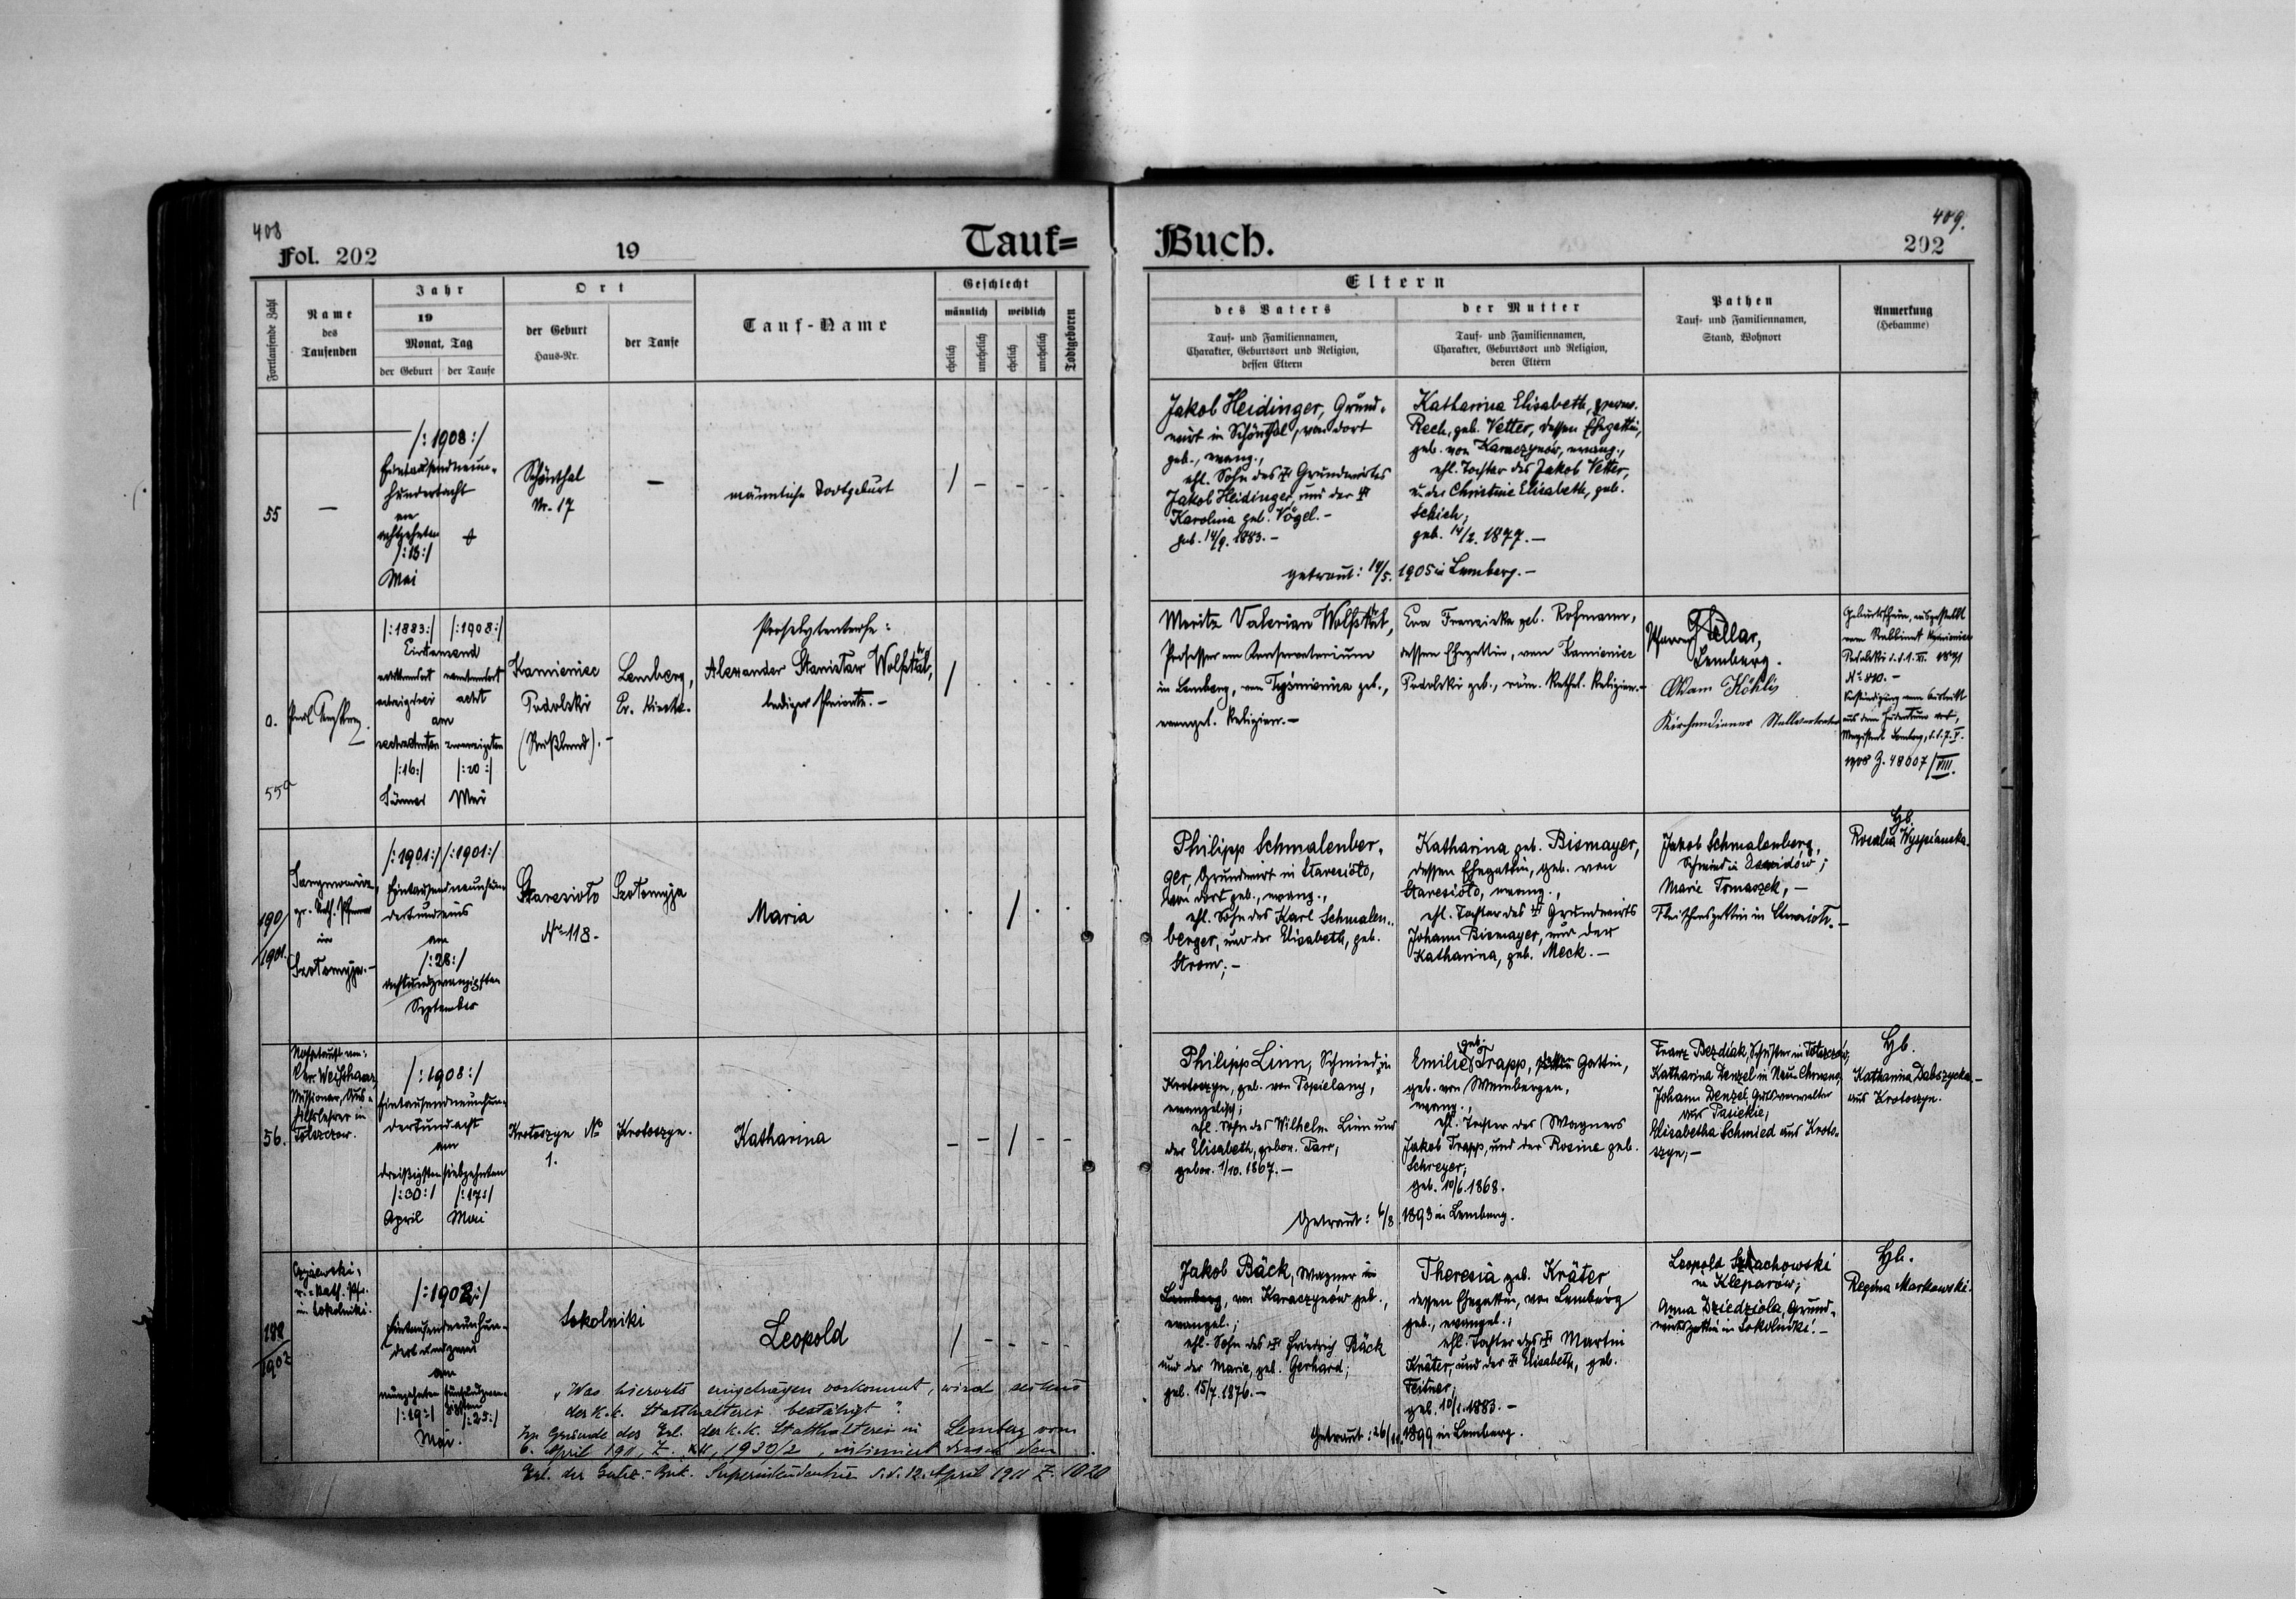 408
Fol. 202
19
Tauf=
Fortlaufende Zahl
Name
des
Taufenden
Jahr
19
Monat, Tag
der Geburt
der Taufe
Ort
der Geburt
Haus-Nr.
der Taufe
Tauf-Name
Geschlecht
männlich
weiblich
ehelich
unehelich
ehelich
unehelich
Todtgeboren
55
—
/:1908:/
Eintausendneun-
hundertacht
am
achtzehnten
/:18:/
Mai
Schönthal
Nr. 17
—
männliche Todtgeburt
0.
55a
/:1883:/ /:1908:/
Eintausend
achthundert neunhundert
achtzigdrei acht
am
sechzehnten zwanzigsten
/:16:/ /:20:/
Jänner Mai
Kamieniec
Podolski
(Rußland).-
Lemberg,
Ev. Kirche.
Proselytentaufe:
Alexander Stanislaw Wolfsthal,
lediger Private.-
190/
1901.
gr.-kath. Pfarrer
in
/:1901:/ /:1901:/
Eintausendneunhun-
dertundeins
am
/:28:/
achtundzwanzigsten
September
Staresioło
No 118.
Maria
56.
Missionar, Aus-
hilfslehrer in
Tolszczow.
/:1908:/
Eintausendneunhun-
dertundacht
am
dreißigsten siebzehnten
/:30:/ /:17:/
April Mai
Krotoszyn No
1.
Krotoszyn.
Katharina
188
1902
r.-kath. Pf.
in Sokolniki.
/:1902:/
Eintausendneunhun-
dertundzwei
am
neunzehnten fünfundzwan-
zigsten
/:19:/ /:25:/
Mai.
Sokolniki
Leopold
„Was hierorts eingetragen vorkommt, wird seitens
der k.k. Statthalterei bestätigt"
Im Grunde des Erl. der k.k. Statthalterei in Lemberg vom
6. April 1911, Z. XII, 1930/2, intimiert durch den
Erl. der Superintendentur d.d. 12. April 1911 Z. 1020
409.
Buch.
202
Eltern
des Vaters
Tauf- und Familiennamen,
Charakter, Geburtsort und Religion,
dessen Eltern
der Mutter
Tauf- und Familiennamen,
Charakter, Geburtsort und Religion,
deren Eltern
Pathen
Tauf- und Familiennamen,
Stand, Wohnort
Anmerkung
(Hebamme)
Jakob Heidinger, Grund-
wirt in Schönthal, von dort
geb., evang.,
ehl. Sohn des † Grundwirtes
Jakob Heidinger, und der †
Karolina geb. Vögel.-
geb. 14/9. 1883.-
Katharina Elisabeth,
Rech, geb. Vetter, dessen Ehegattin,
geb. von Karaczynów, evang.,
ehl. Tochter des Jakob Vetter,
u. der Christine Elisabeth, geb.
Schich,
geb. 14/2. 1877.—
getraut: 14/5. 1905 in Lemberg.-
Moritz Valerian Wolfsthal,
Professor am Konservatorium
in Lemberg, von Tyśmienica geb.,
evangel. Religion.—
Eva Franziska geb. Rofmann,
dessen Ehegattin, von Kamieniec
Podolski geb., röm. kathol. Religion.-
Pfarrer
Lemberg.
Adam Köhlis
Kirchendiener Stellvertreter
Geburtsschein, ausgestellt
vom Rabbinat Kamieniec
Podolski
No 810.-
aus dem Judentum
Magistrat Lemberg, d.d. 7. V.
1908 Z. 48607/VIII.
Philipp Schmalenber-
ger, Grundwirt in Staresioło,
von dort geb., evang.,
ehl. Sohn des Karl Schmalen-
berger, und der Elisabeth, geb.
Strom;-
Katharina geb. Bismayer,
dessen Ehegattin, geb. von
Staresioło, evang.,
ehl. Tochter des † Grundwirts
Johann Bismayer, und der
Katharina, geb. Meck.-
Jakob Schmalenberg,
Schmied in Dawidów;
Marie Tomaszek,—
Hb.
Rosalia Wyspianska.
Philipp Linn, Schmied in
Krotoszyn, geb. von Popielany,
evangelisch;
ehl. Sohn des Wilhelm Linn und
der Elisabeth, gebor. Parr,
gebor. 1/10. 1867.—
Emilie geb. Trapp, Gattin,
geb. von Weinbergen,
evang.,
ehl. Tochter des Wagners
Jakob Trapp, und der Rosine geb.
Schreyer;
geb. 10/6. 1868.
Getraut: 6/8 1893 in Lemberg.
Franz Bezdiak, Schuster in Tolszczów,
Katharina Denzel in
Johann Denzel, Gutsverwalter
aus Pasiekie,
Elisabetha Schmied aus Kroto-
szyn;—
Hb.
Katharina Dabszycka-
aus Krotoszyn.
Jakob Bäck, Wagner in
Lemberg, von Karaczynów geb.,
evangel.;
ehl. Sohn des † Friedrich Bäck
und der Marie, geb. Gerhard;
geb. 15/7. 1876.—
Theresia geb. Kräter
dessen Ehegattin, von Lemberg
geb., evangel.;
ehl. Tochter des † Martin
Kräter, und der † Elisabeth, geb.
Feitner;
geb. 10/1. 1883.-
Getraut: 26/11. 1899 in Lemberg.
Leopold
in Kleparów;
Anna Dziedziola, Grund-
wirtsgattin in Sokolniki.-
Hb.
Regina Markowski.